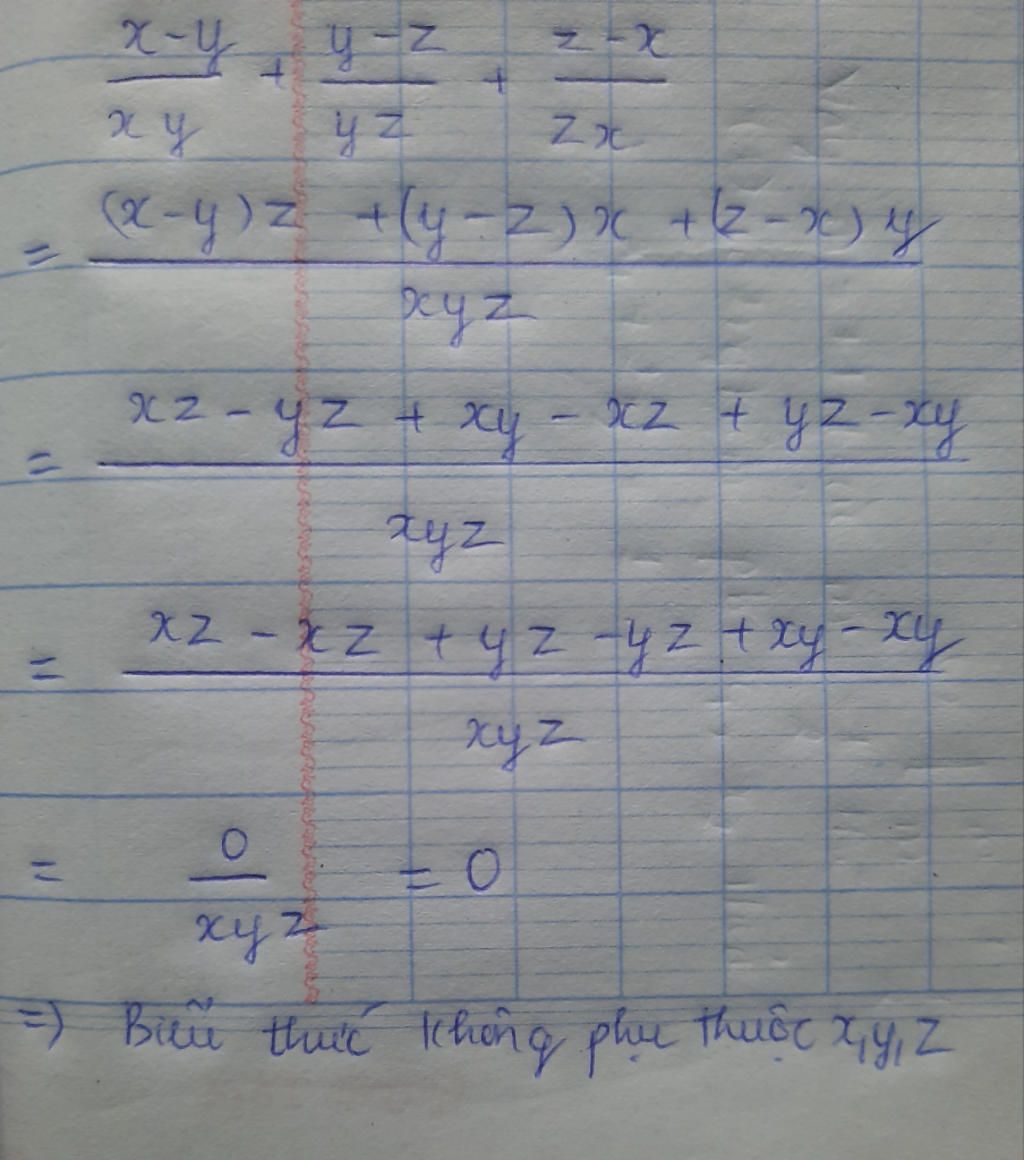 x-y/xy + y-z/yz + z-x/zx
= (x-y)z + (y-z)x + (z-x)y/xyz
= xz - yz + xy - xz + yz - xy/xyz
= xz - xz + yz - yz + xy - xy/xyz
= 0/xyz = 0
=) Biểu thức không phụ thuộc x,y,z